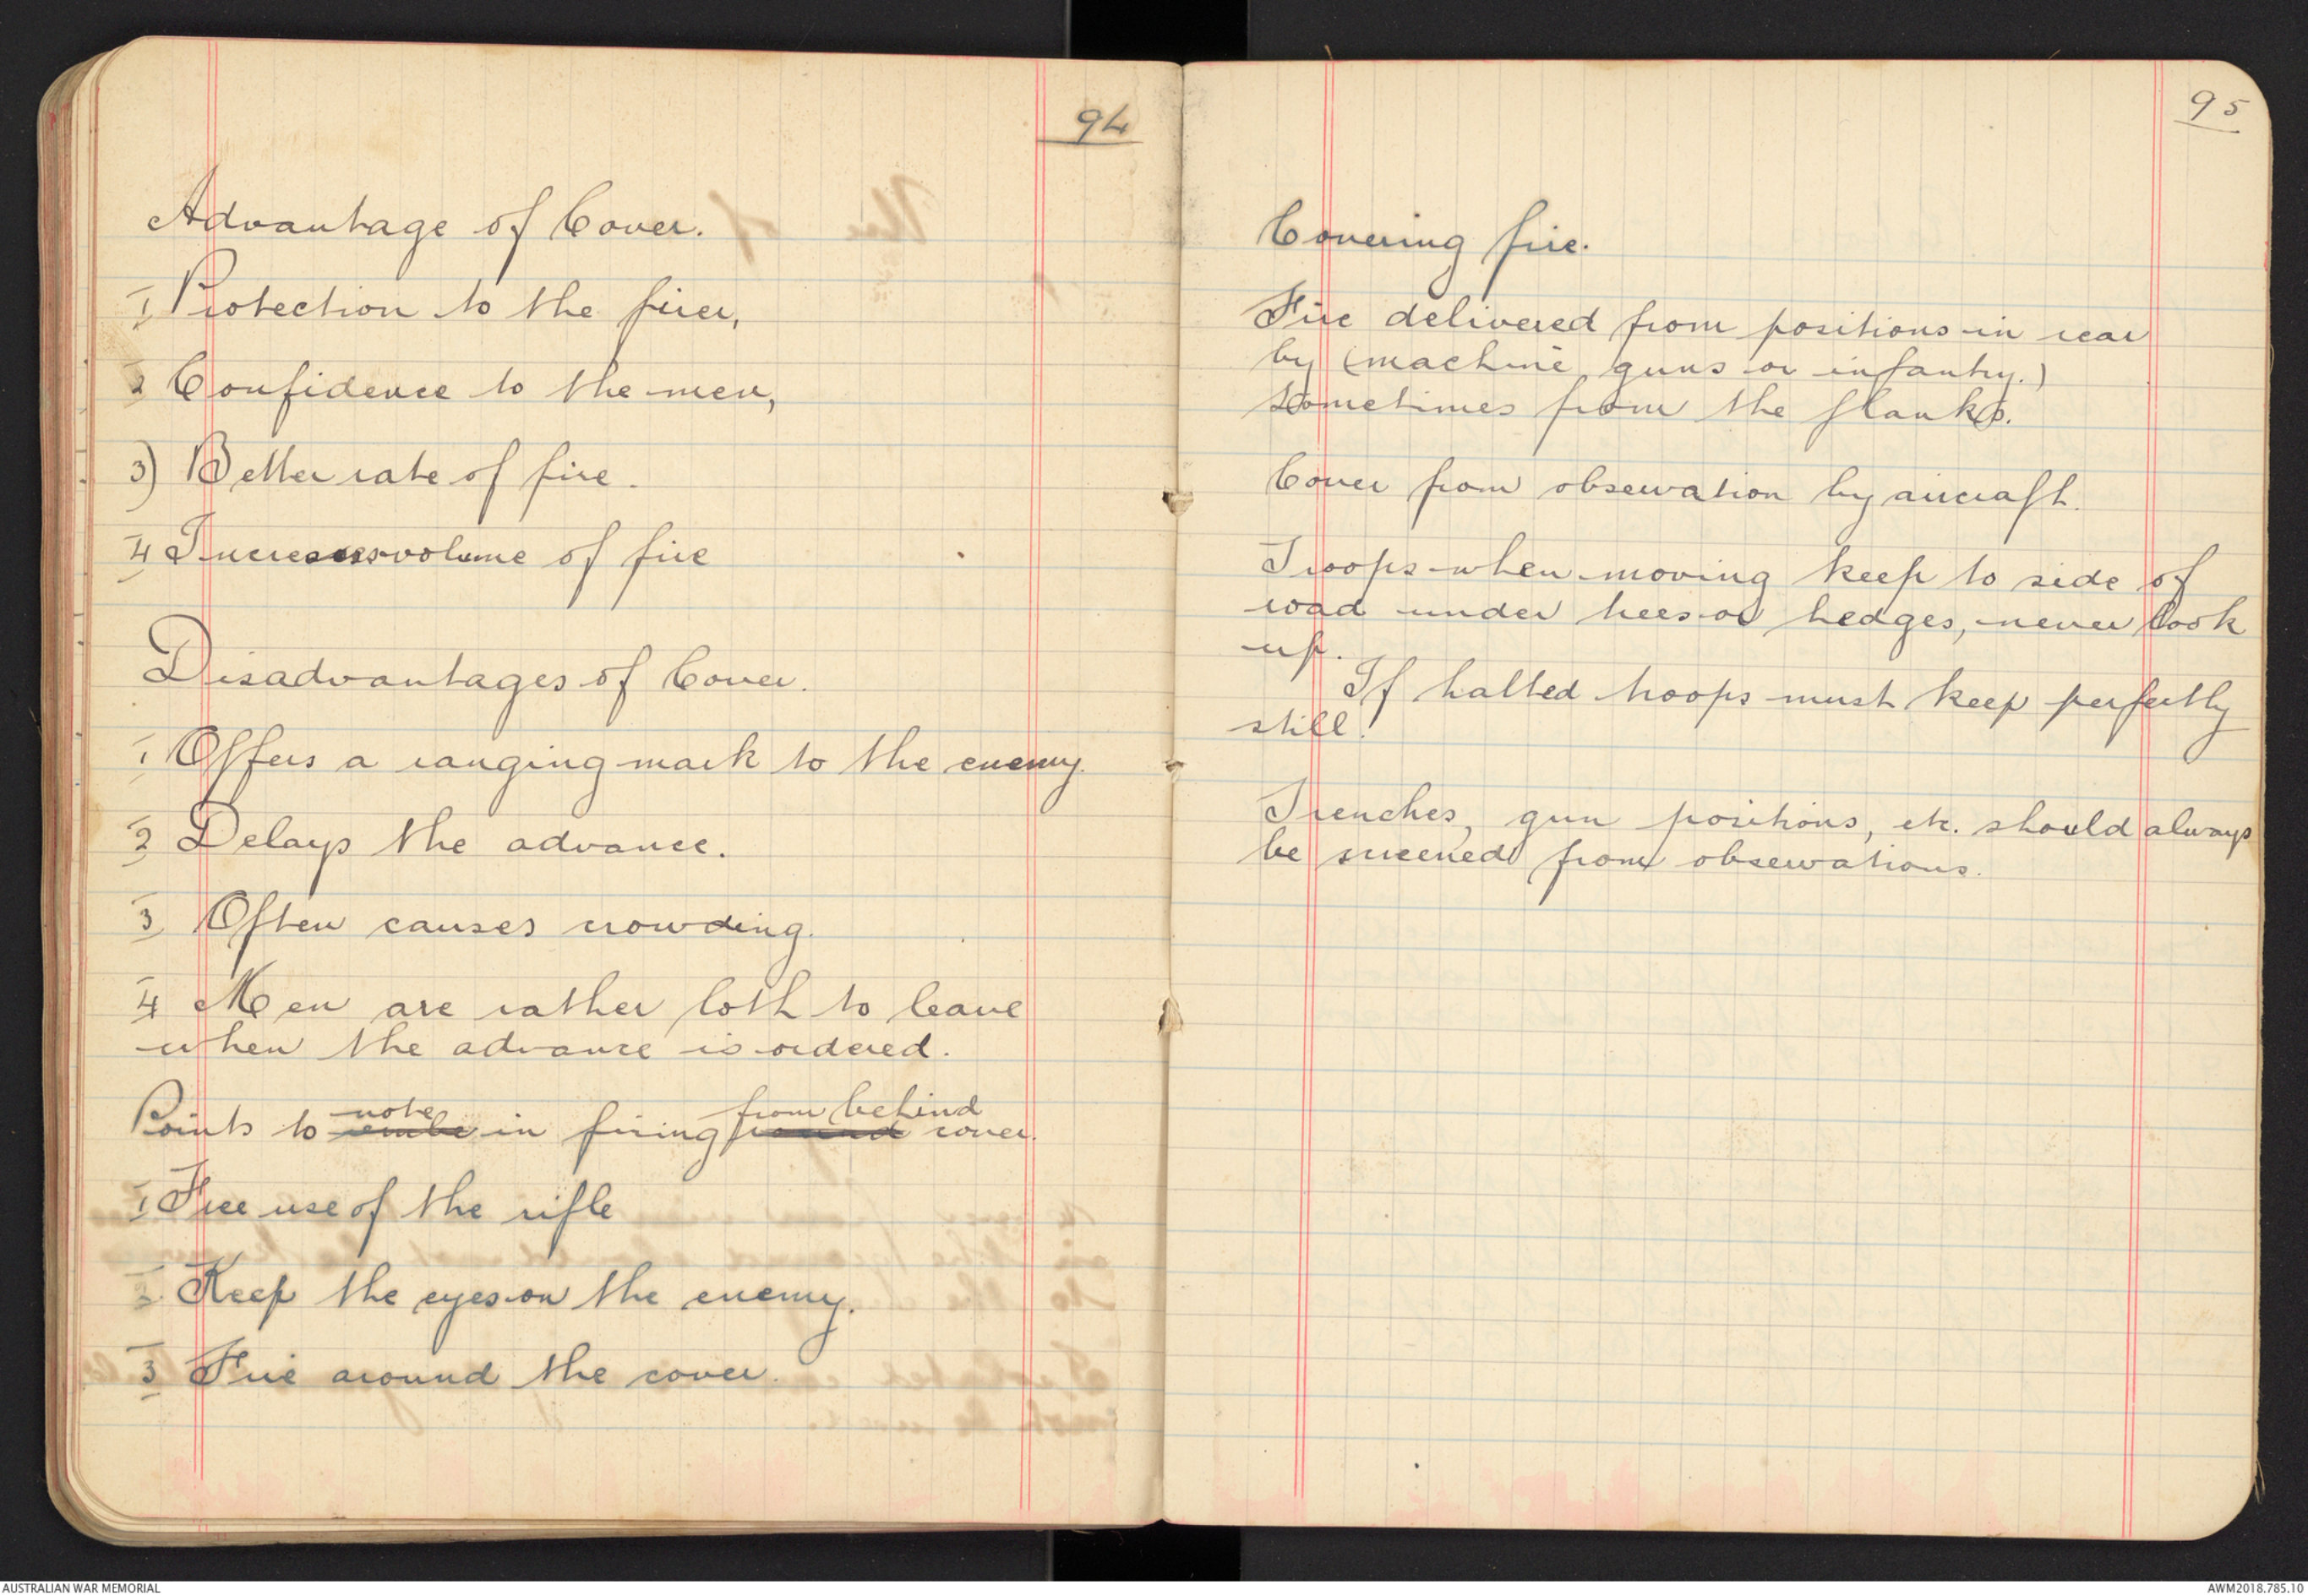 94
Advantage of Cover.
1 Protection to the firer,
2 Confidence to the men,
3) Better rate of fire.
4 Increases volume of fire
Disadvantages of Cover.
1 Offers a ranging mark to the enemy.
2 Delays the advance.
3 Often causes crowding.
4 Men are rather loth to leave
when the advance is ordered.
Points to note in firing from behind cover.
1 Free use of the rifle
2 Keep the eyes on the enemy.
3 Fire around the cover.
95
Covering fire.
Fire delivered from positions in rear
by (machine guns or infantry.)
sometimes from the flanks.
Cover from observation by aircraft.
Troops when moving keep to side of
road under trees or hedges, never look
up.
If halted troops must keep perfectly
still.
Trenches, gun positions, etc. should always
be screened from observations.
AUSTRALIAN WAR MEMORIAL
AWM2018.785.10